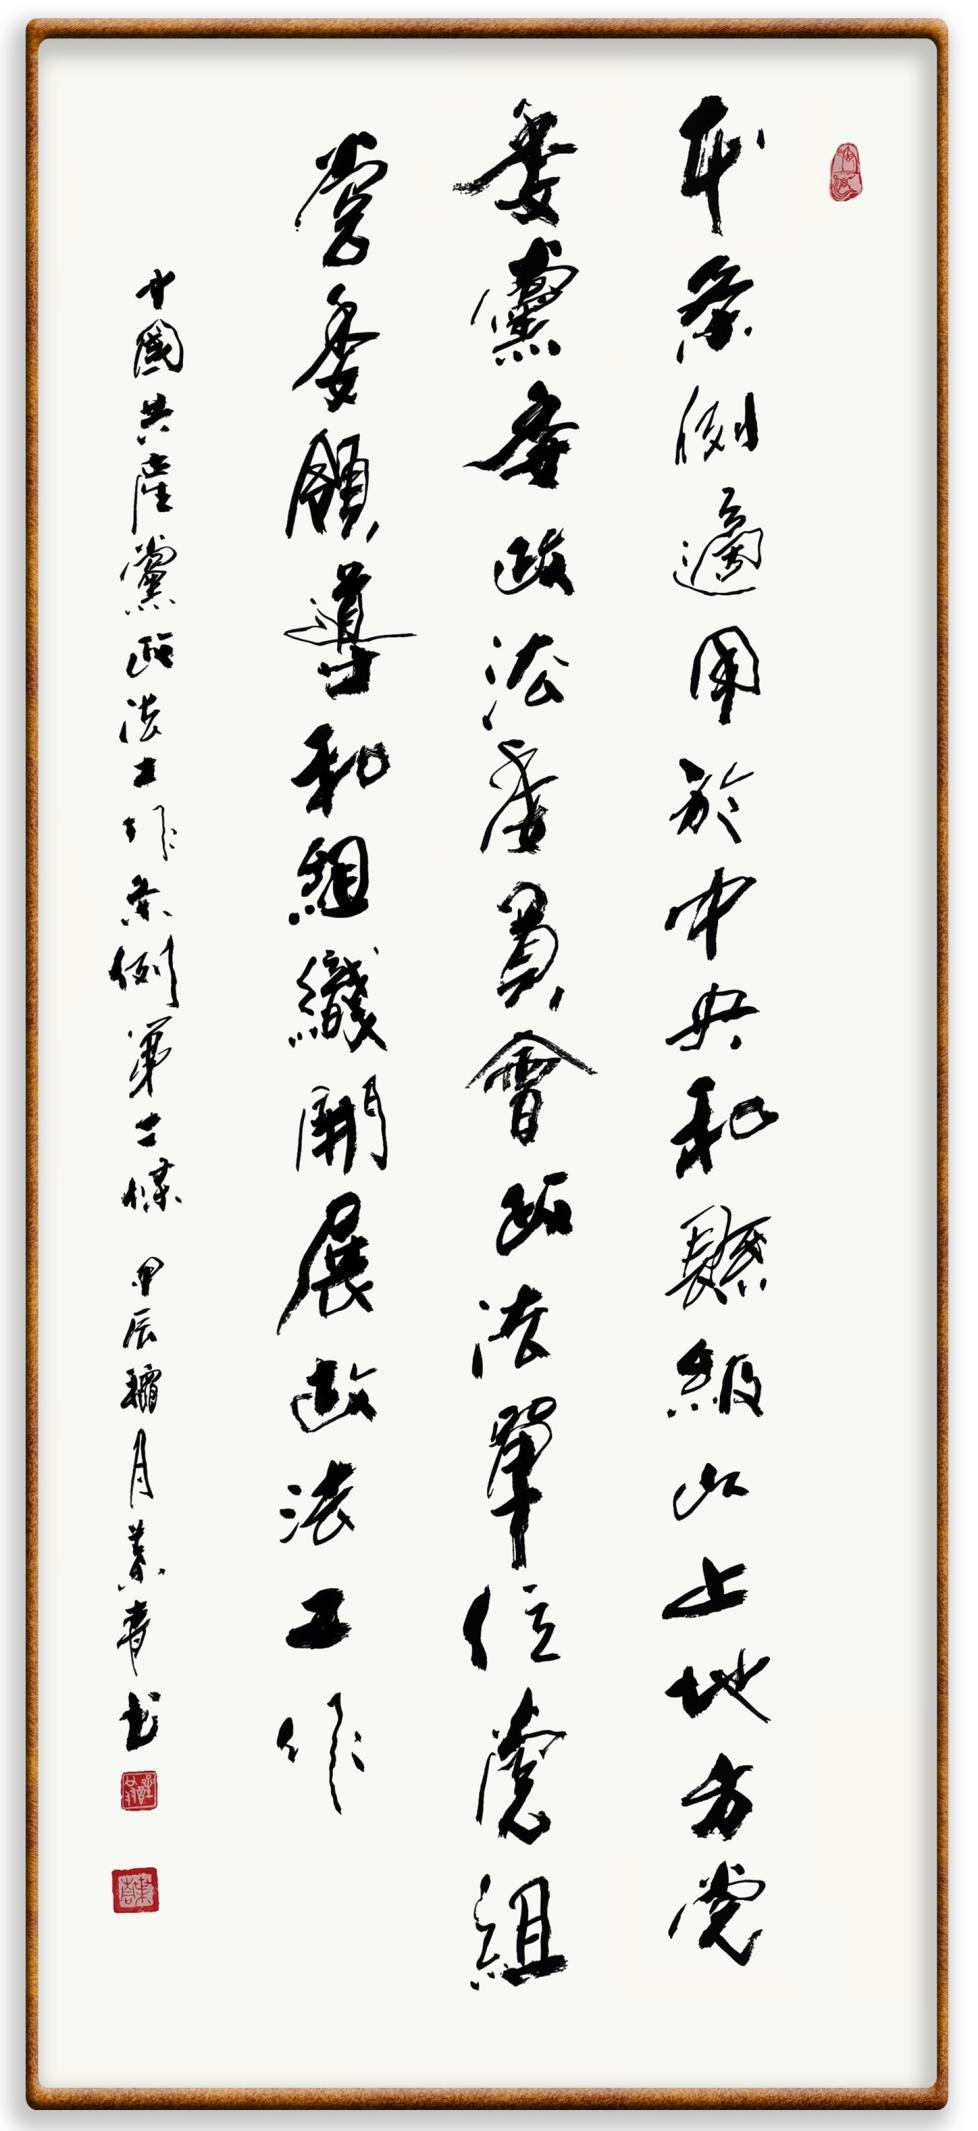 本條例適用於中央和縣級以上地方党
委黨委政法委員會政法單位党組
黨委領導和組織開展政法工作
中國共產黨政法工作條例第二條 甲辰 月 書